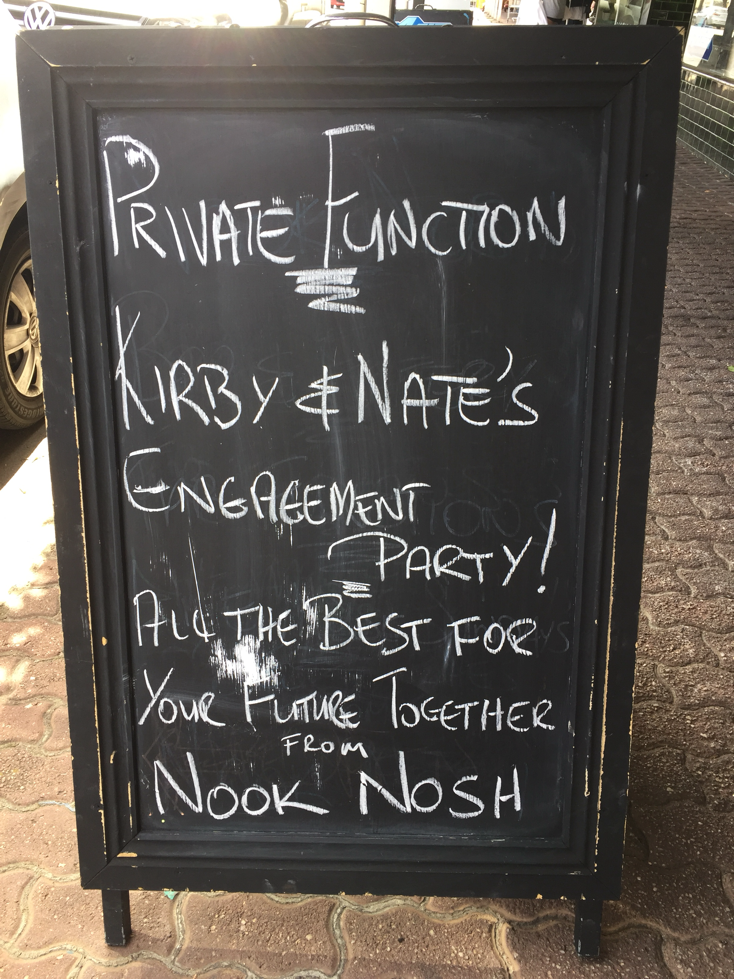 PRIVATE FUNCTION
KIRBY & NATE'S
ENGAGEMENT
PARTY!
ALL THE BEST FOR
YOUR FUTURE TOGETHER
FROM
NOOK NOSH